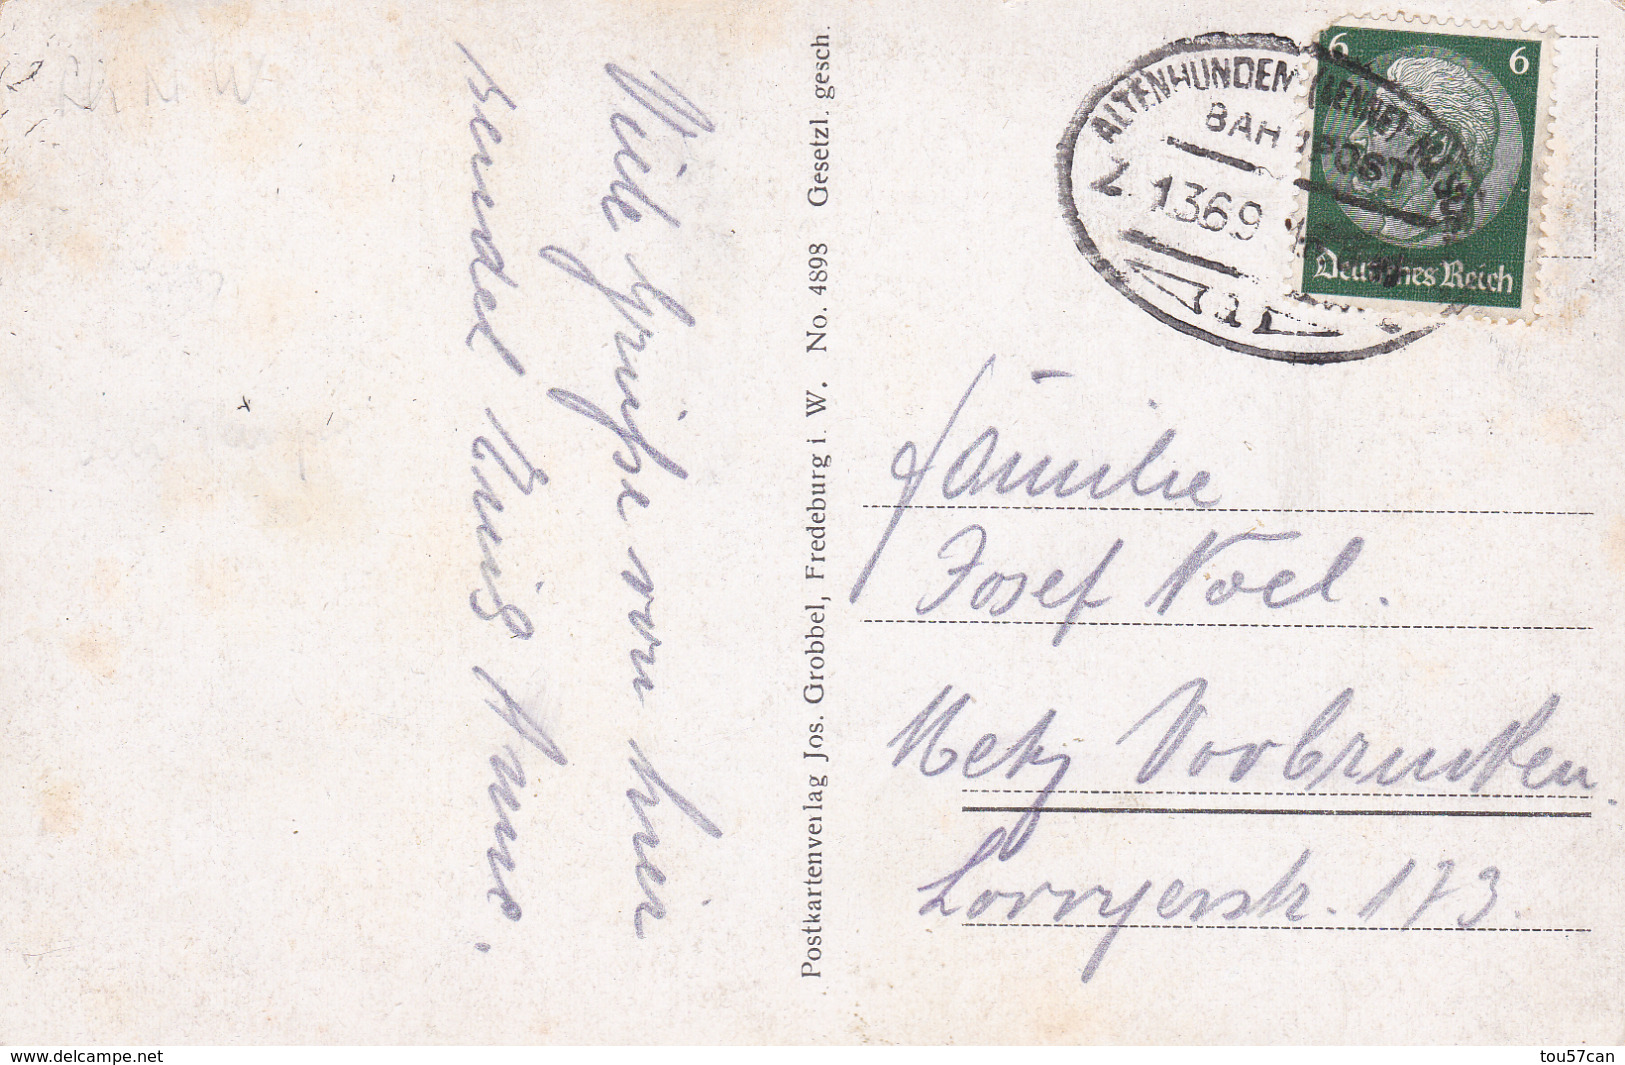 Viele Grüsse von hier
sendet Euch Anne.
Postkartenverlag Jos. Grobbel, Fredeburg i. W. No. 4898 Gesetzl. gesch.
ALTENHUNDEM
BAHNPOST
Z. 1369
6 6
Deutsches Reich
Familie
Josef Noel.
Metz Vorbrucken.
Lorryerstr. 173.
www.delcampe.net
tou57can